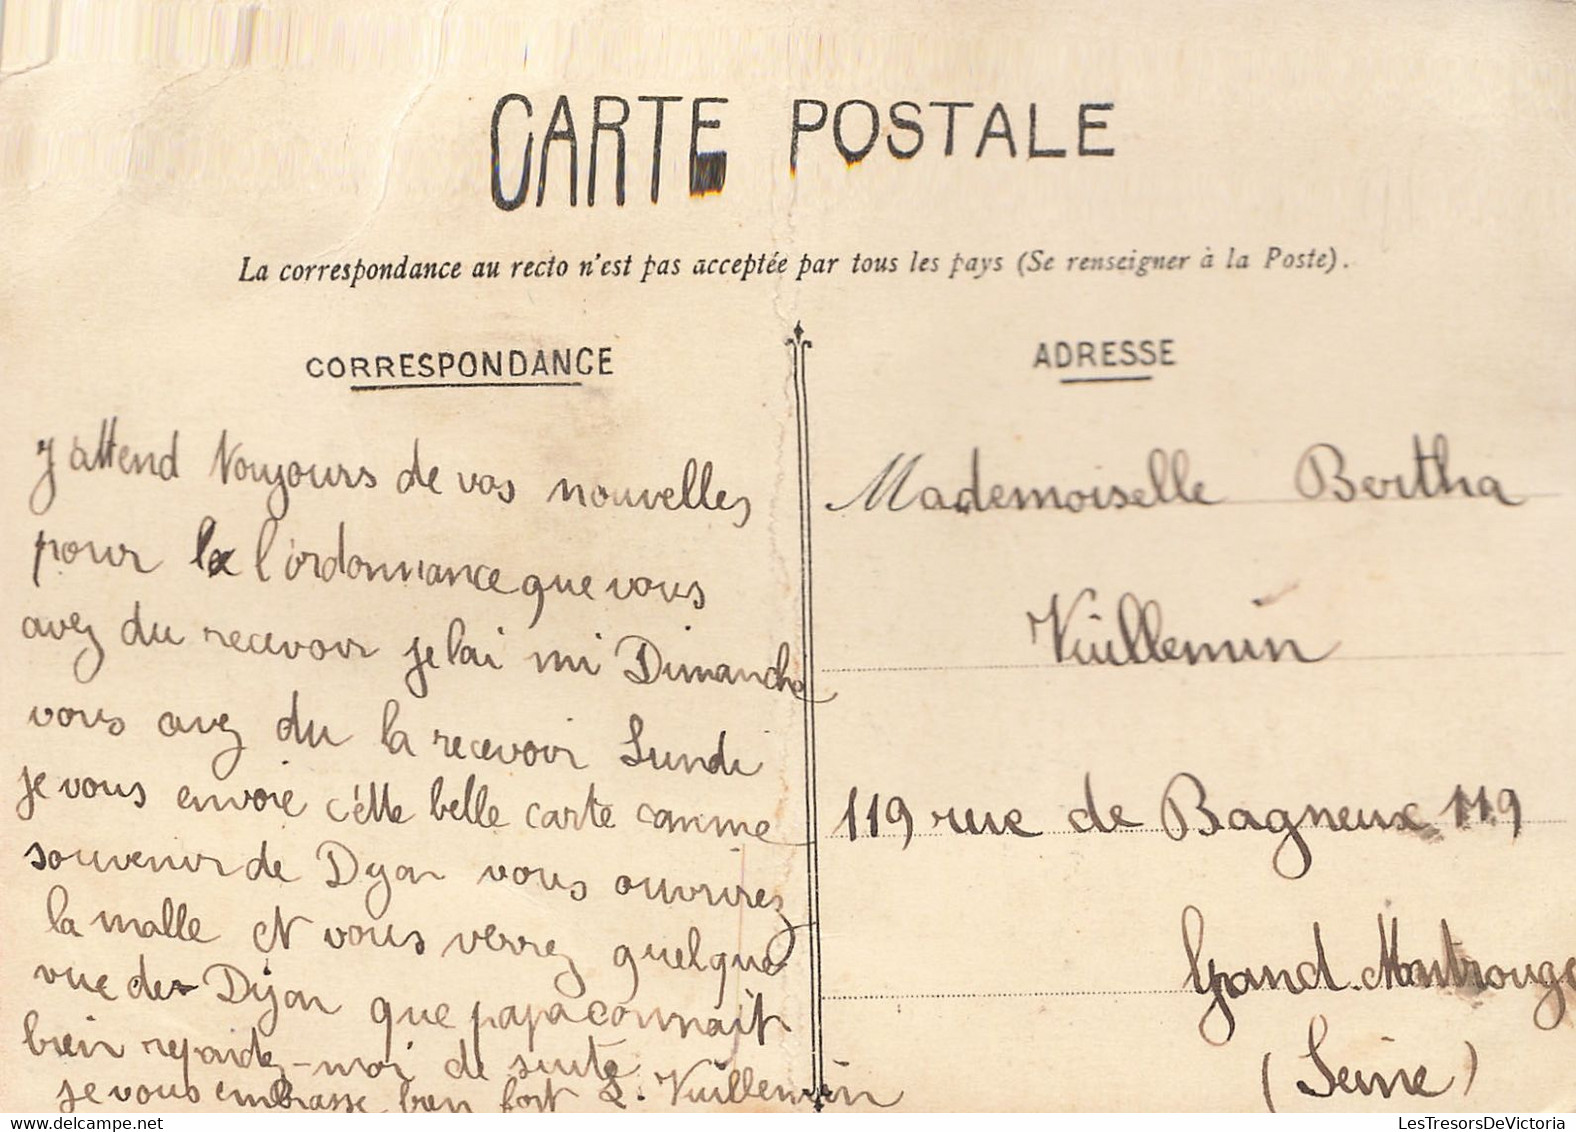 CARTE POSTALE
La correspondance au recto n'est pas acceptée par tous les pays (Se renseigner à la Poste).
CORRESPONDANCE
J attend toujours de vos nouvelles
pour la l'ordonnance que vous
avez du recevoir je lai mi Dimanche
vous avez du la recevoir Lundi
je vous envoie c'ette belle carte comme
souvenir de Dijon vous ouvrirez
la malle et vous verrez quelque
vue de Dijon que papa connait
bien repondez-moi de suite
je vous embrasse bien fort L. Vuillemin
ADRESSE
Mademoiselle Bertha
Vuillemin
119 rue de Bagneux 119
Grand-Montrouge
(Seine)
LesTresorsDeVictoria